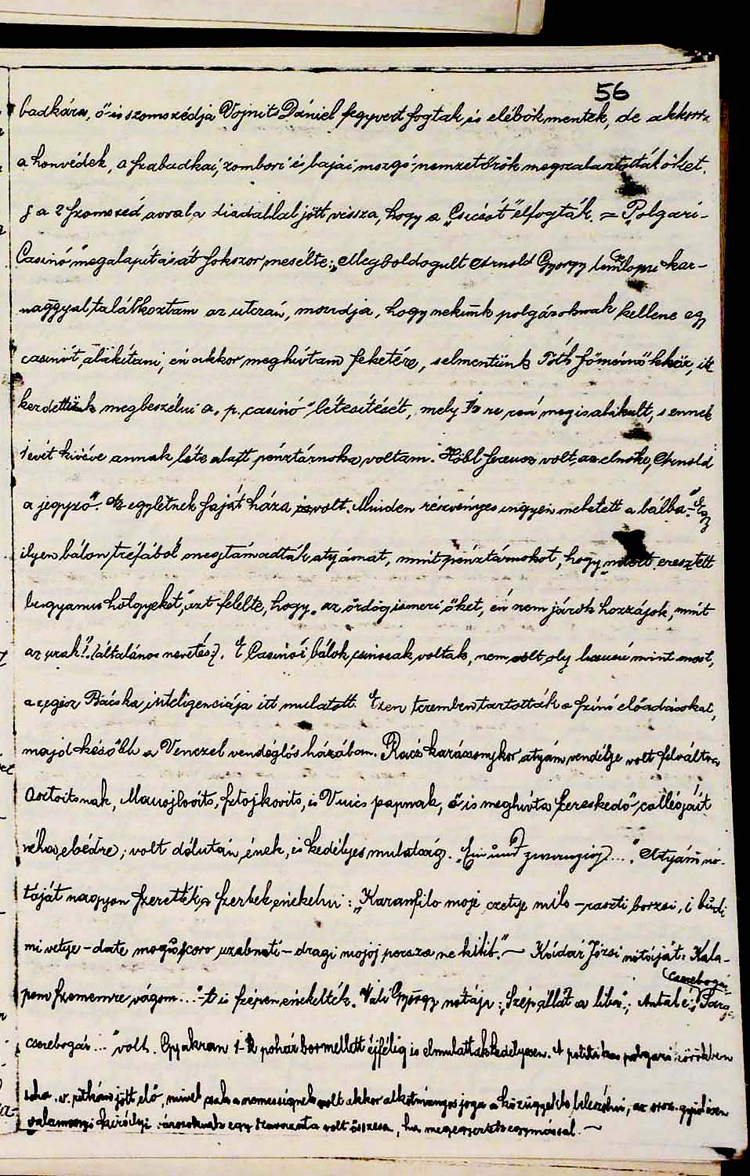 56
badkára, ő is szomszédja Vojnits Dániel fegyvert fogtak és elébök mentek, de akkorr
a honvédek, a szabadkai, zombori és bajai mozgó nemzetőrök megszalasztották őket.
s a 2 szomszéd avval a diadallal jött vissza, hogy a "Csicsót" elfogták. = "Polgári-
Casinó" megalapítását sokszor mesélte: "Megboldogult Arnold György templomi kar-
naggyal találkoztam az utcán, mondja, hogy nekünk polgároknak kellene egy
casinót alakítani, én akkor meghívtam feketére, s elmentünk Tóth főmérnökhöz, itt
kezdettünk megbeszélni a "p. casinó" létesítését, mely is meg is alakult, s ennek
1 évét kivéve annak léte alatt pénztárnoka voltam. Hőbl volt az elnöke, Arnold
a jegyző". Az egyletnek saját háza is volt. Minden részvényes ingyen mehetett a bálba. Egy
ilyen bálon tréfából megtámadták atyámat, mint pénztárnokot, hogy miért eresztett
be gyanus hölgyeket, azt felelte, hogy "az ördög ismeri őket, én nem járok hozzájok, mint
az urak". (általános nevetés). E Casinói bálok csinosak voltak, nem volt oly luxus mint most,
az egész Bácska intelligenciája itt mulatott. Ezen teremben tartották a színi előadásokat,
majd később a Venczel vendéglős házában. Rácz karácsonykor atyám vendége volt
Manojlovits, Sztojkovits, és Vuics papnak, ő is meghívta kereskedő collégáit
néha ebédre; volt délután, ének, és kedélyes mulatság. Atyám no-
táját nagyon szerették a szerbek énekelni: "Karanfilo moje czvetye milo
- dragi mojoj Kridár Józsi nótáját: Kala-
pom szememre vágom..."-t is szépen énekelték. Váli György nótája: "Szép állat a liba"; Antalé: "Sárga
cserebogár
cserebogár..." volt. Gyakran 1-2 pohár bor mellett éjfélig is elmulattak kedélyesen. A politika a polgári körökben
soha jött elő, mivel csak a nemességnek volt akkor alkotmányos joga a közügyekbe beleszólni, az orsz. gyűlésen
valamennyi királyi városoknak egy szavazata volt összesen, ha megegyeztek egymással. ~